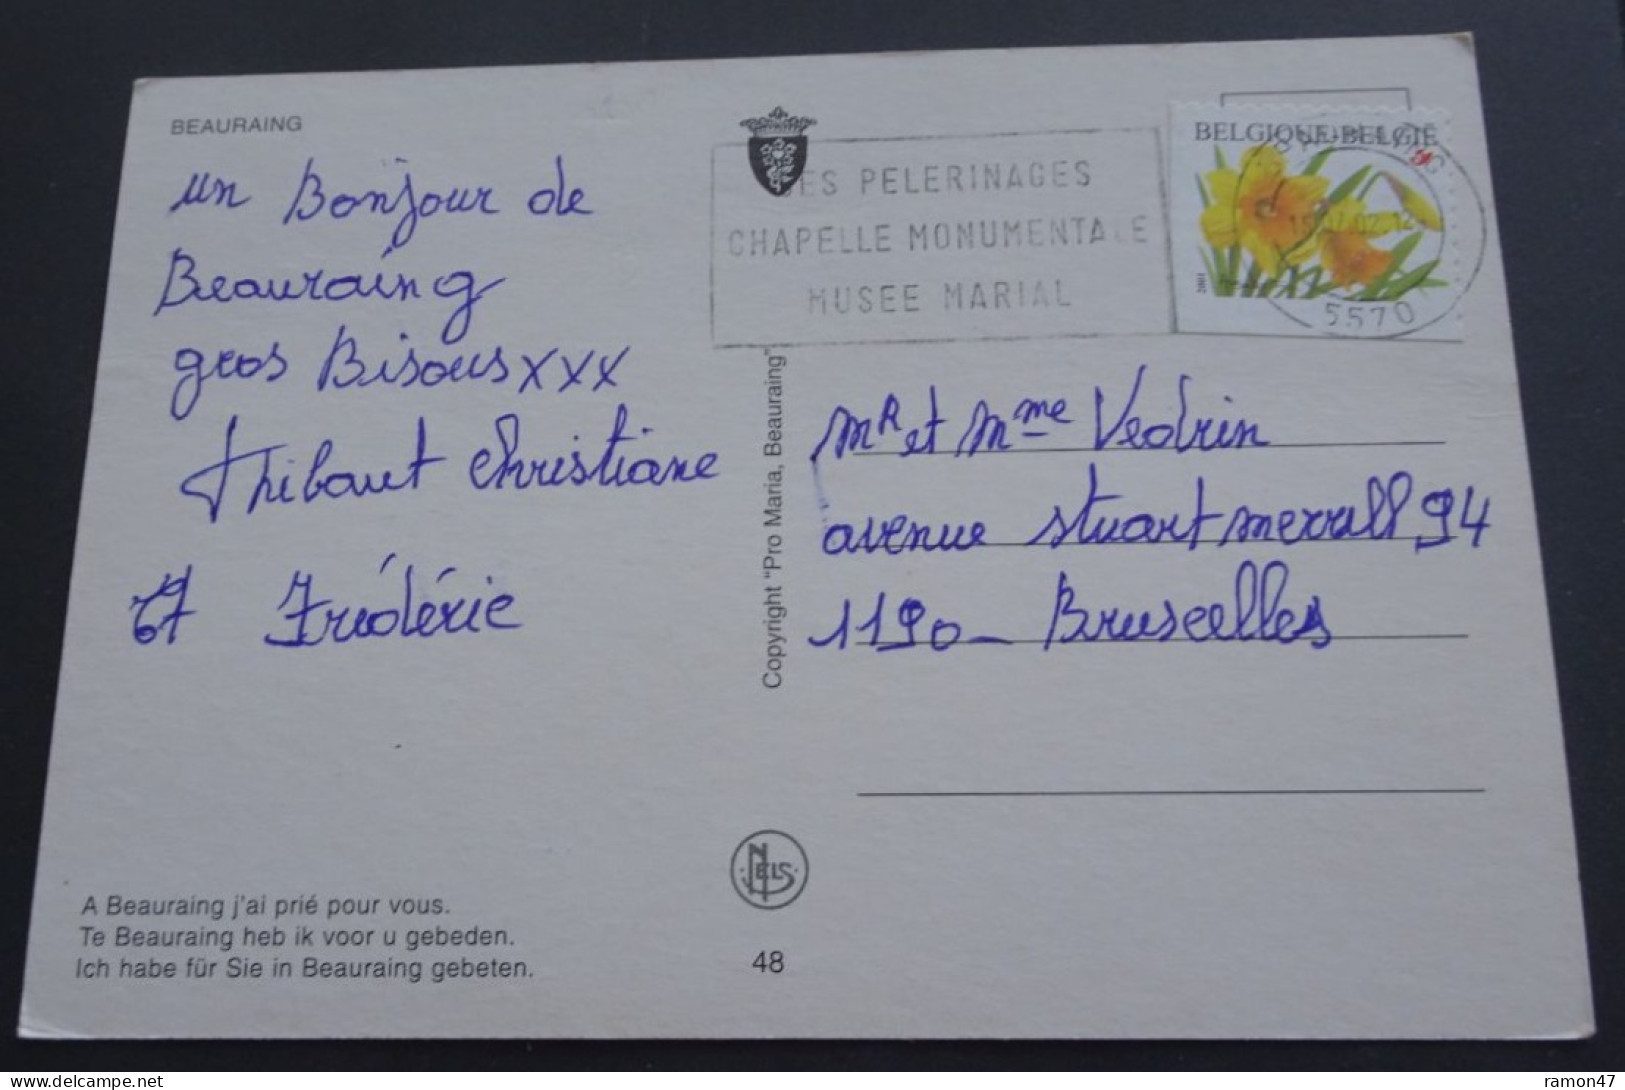 BEAURAING
un Bonjour de
Beauraing
gros Bisous xxx
Thibaut Christiane
et Frédéric
A Beauraing j'ai prié pour vous.
Te Beauraing heb ik voor u gebeden.
Ich habe für Sie in Beauraing gebeten.
ES PELERINAGES
CHAPELLE MONUMENTALE
MUSEE MARIAL
Copyright "Pro Maria, Beauraing"
NELS
48
BELGIQUE-BELGIË
2001
5570
Mr et Mme Vedrin
avenue stuart merrall 94
1190 - Bruxelles
ramon47